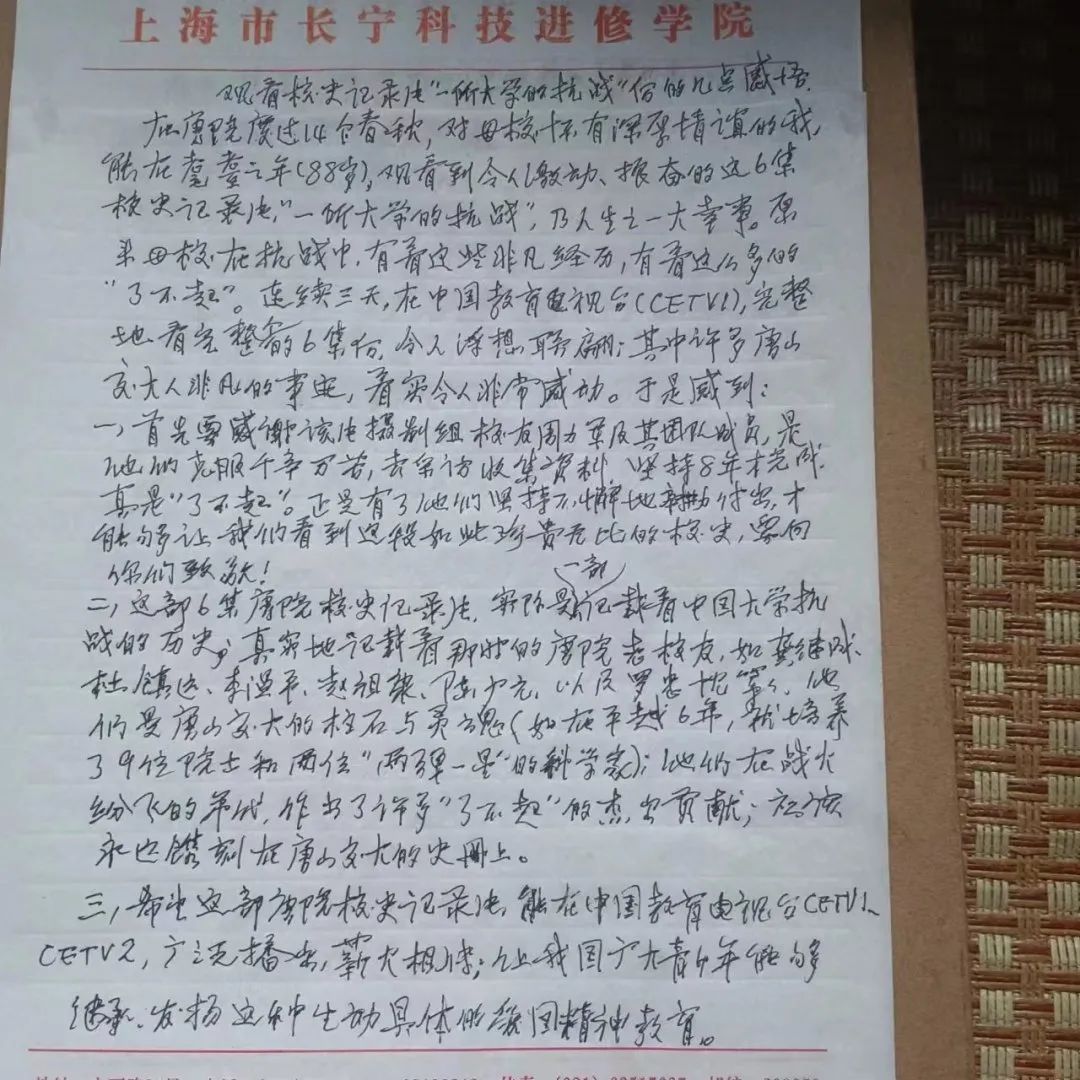 上海市长宁科技进修学院
观看校史记录片"一所大学的抗战"后的几点感悟
在唐院度过14个春秋,对母校怀有深厚情谊的我,
能在耄耋之年(88岁),观看到令人激动、振奋的这6集
校史记录片,"一所大学的抗战",乃人生之一大幸事。原
来母校在抗战中,有着这些非凡经历,有着这么多的
"了不起"。连续三天,在中国教育电视台(CETV1),完整
地看完整套的6集后,令人浮想联翩;其中许多唐山
交大人非凡的事迹,着实令人非常感动。于是感到:
一,首先要感谢该片摄制组校友周力军及其团队成员,是
他们克服千辛万苦,去采访收集资料,坚持8年才完成,
真是"了不起"。正是有了他们坚持不懈地辛勤付出,才
能够让我们看到这段如此珍贵无比的校史,要向
你们致敬!
二,这部6集唐院校史记录片,实际是一部记载着中国大学抗
战的历史;真实地记载着那时的唐院老校友,如黄继成、
杜镇远、李温平、赵祖康、陈力元,以及罗忠忱等,他
们是唐山交大的柱石与灵魂(如在平越6年,就培养
了9位院士和两位"两弹一星"的科学家);他们在战火
纷飞的年代,作出了许多"了不起"的杰出贡献;应该
永远镌刻在唐山交大的史册上。
三,希望这部唐院校史记录片,能在中国教育电视台CETV1、
CETV2,广泛播出,薪火相传;让我国广大青少年能够
继承、发扬这种生动具体的爱国精神教育。